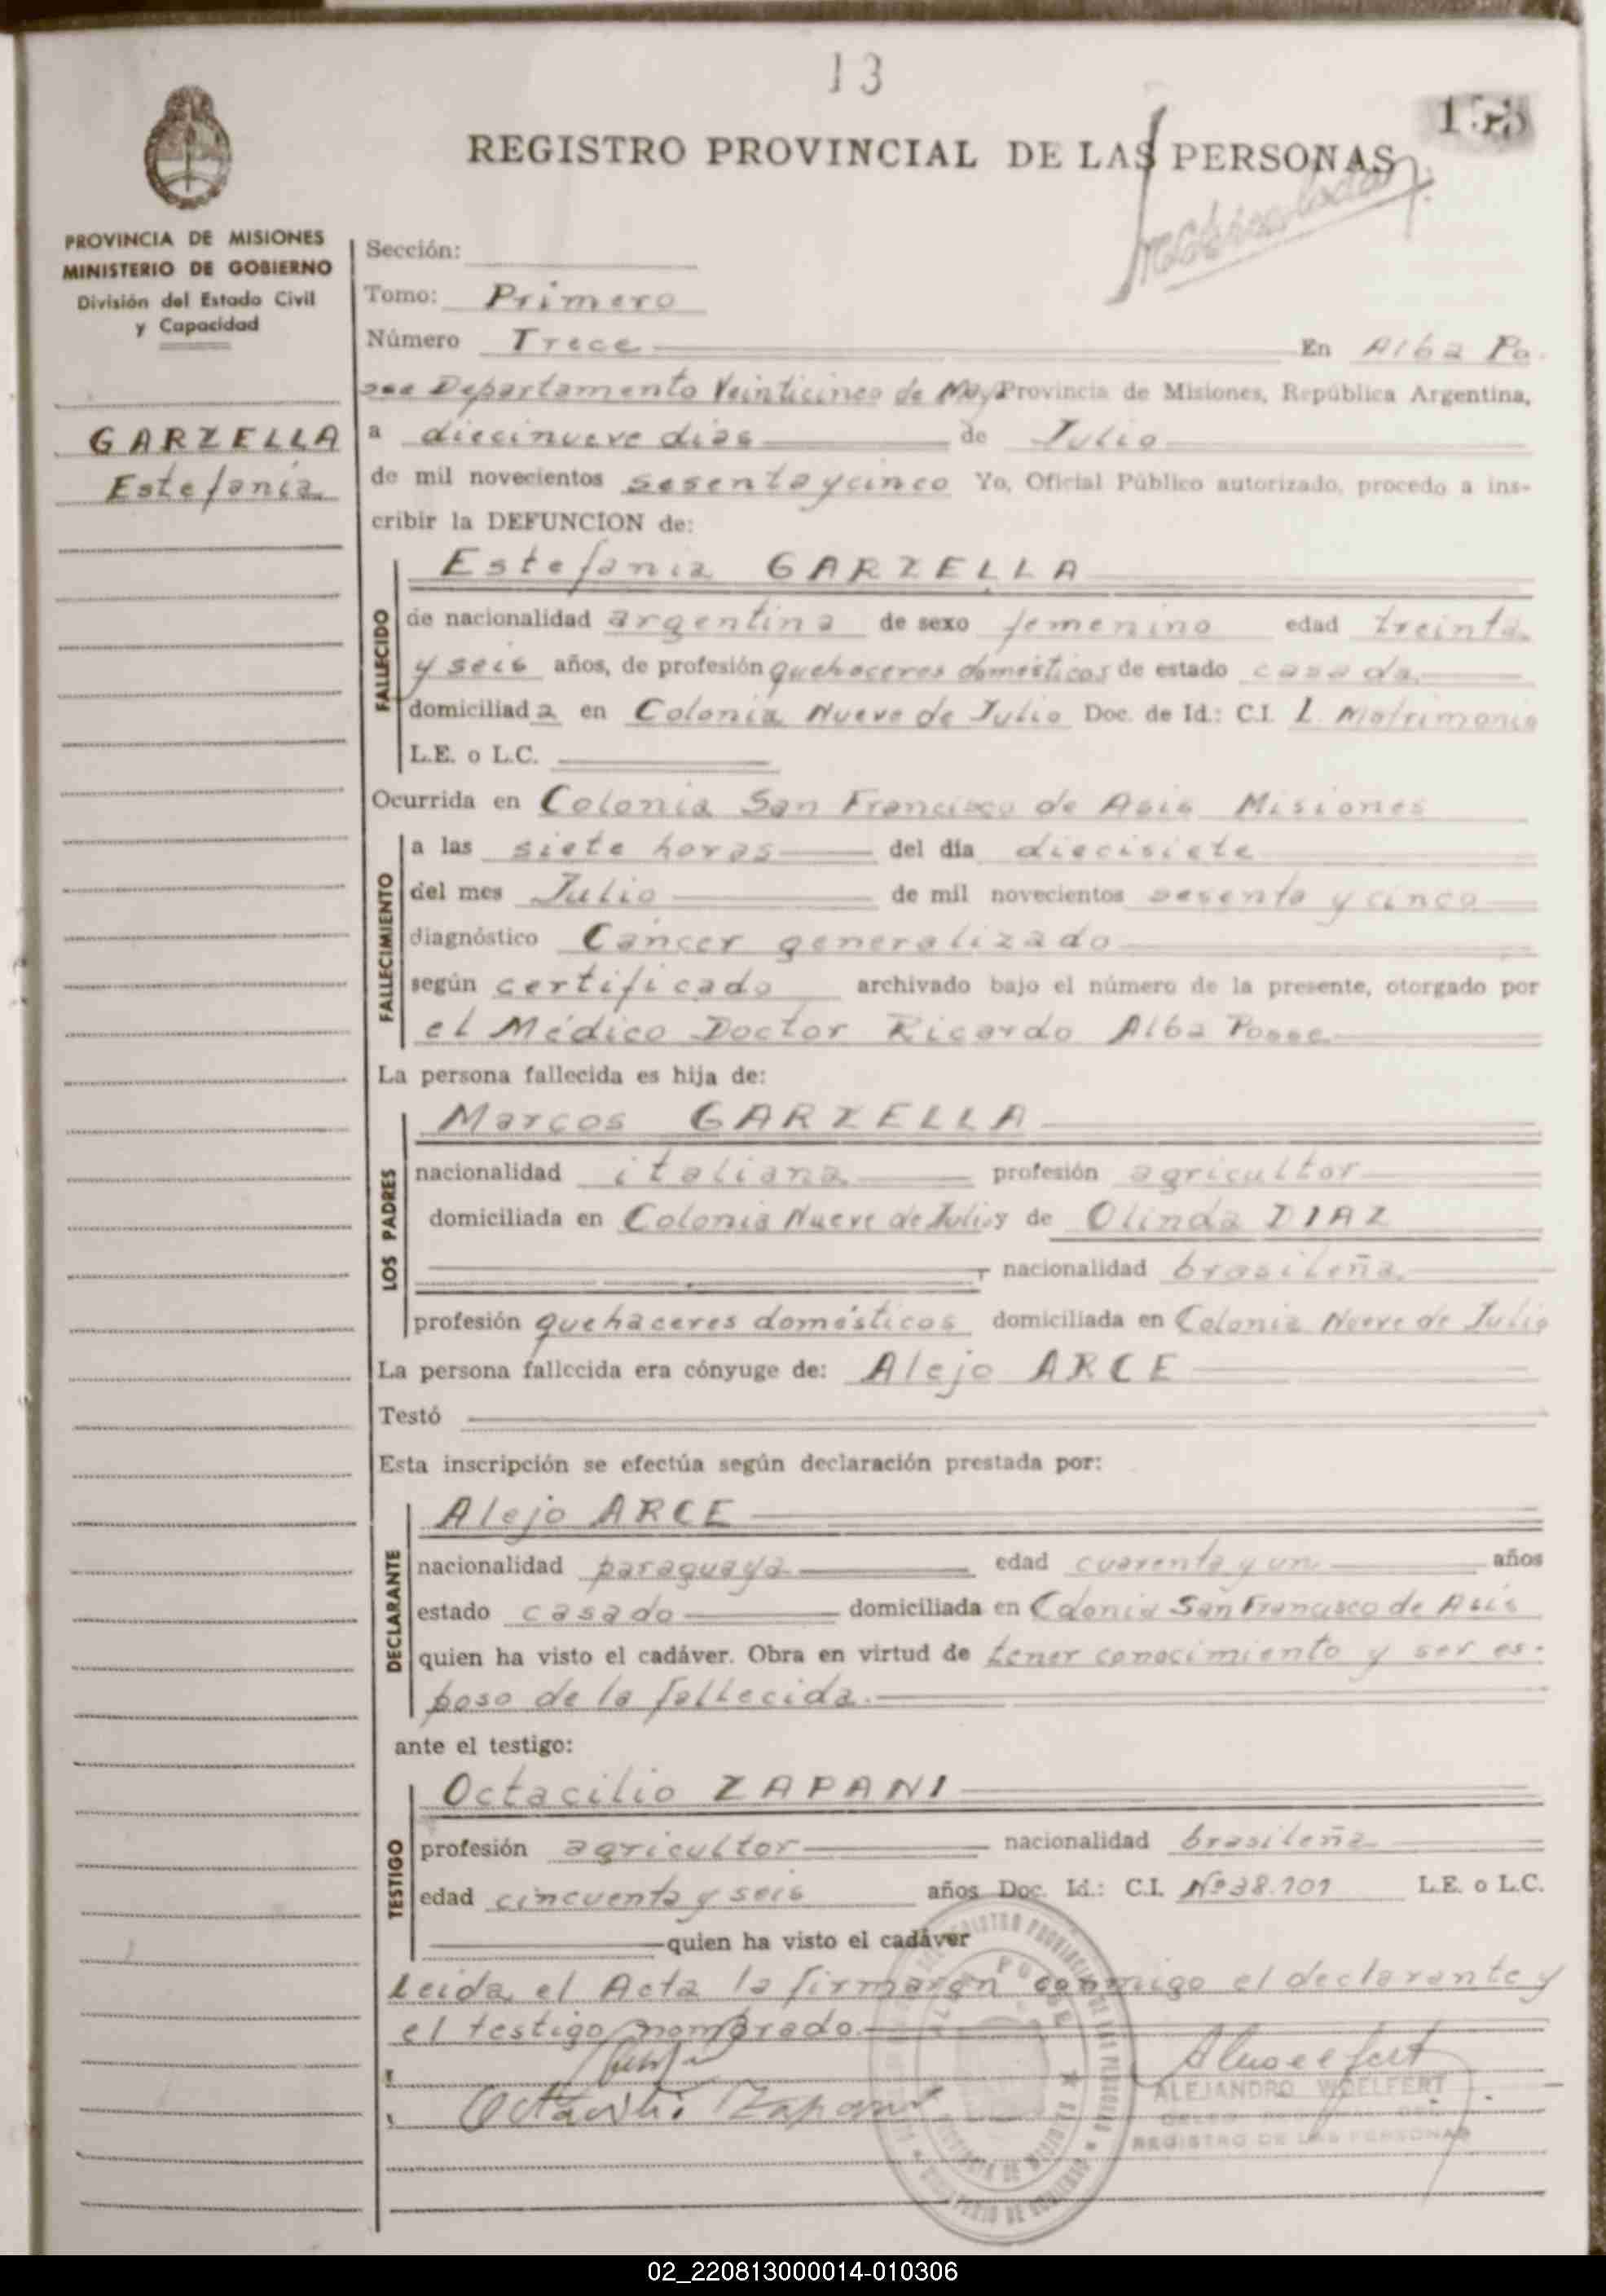 13
REGISTRO PROVINCIAL DE LAS PERSONAS
PROVINCIA DE MISIONES
MINISTERIO DE GOBIERNO
División del Estado Civil
y Capacidad
GARZELLA
Estefania
Sección:
Tomo: Primero
Número Trece En Alba Po-
sse Departamento Veinticinco de Mayo Provincia de Misiones, República Argentina,
a diecinueve dias de Julio
de mil novecientos sesenta y cinco Yo, Oficial Público autorizado, procedo a ins-
cribir la DEFUNCION de:
FALLECIDO
Estefania GARZELLA
de nacionalidad argentina de sexo femenino edad treinta
y seis años, de profesión quehaceres domésticos de estado casada
domiciliada en Colonia Nueve de Julio Doc. de Id.: C.I. L. Matrimonio
L.E. o L.C.
Ocurrida en Colonia San Francisco de Asis Misiones
FALLECIMIENTO
a las siete horas del día diecisiete
del mes Julio de mil novecientos sesenta y cinco
diagnóstico Cáncer generalizado
según certificado archivado bajo el número de la presente, otorgado por
el Médico Doctor Ricardo Alba Posse
La persona fallecida es hija de:
LOS PADRES
Marcos GARZELLA
nacionalidad italiana profesión agricultor
domiciliada en Colonia Nueve de Julio y de Olinda DIAZ
nacionalidad brasileña
profesión quehaceres domésticos domiciliada en Colonia Nueve de Julio
La persona fallecida era cónyuge de: Alejo ARCE
Testó
Esta inscripción se efectúa según declaración prestada por:
DECLARANTE
Alejo ARCE
nacionalidad paraguaya edad cuarenta y un años
estado casado domiciliada en Colonia San Francisco de Asis
quien ha visto el cadáver. Obra en virtud de tener conocimiento y ser es-
poso de la fallecida.
ante el testigo:
TESTIGO
Octacilio ZAPANI
profesión agricultor nacionalidad brasileña
edad cincuenta y seis años Doc. Id.: C.I. Nº 38.101 L.E. o L.C.
quien ha visto el cadáver
Leida el Acta la firmaron conmigo el declarante y
el testigo nombrado.
Octacilio Zapani
ALEJANDRO WOELFERT
REGISTRO DE LAS PERSONAS
02_220813000014-010306